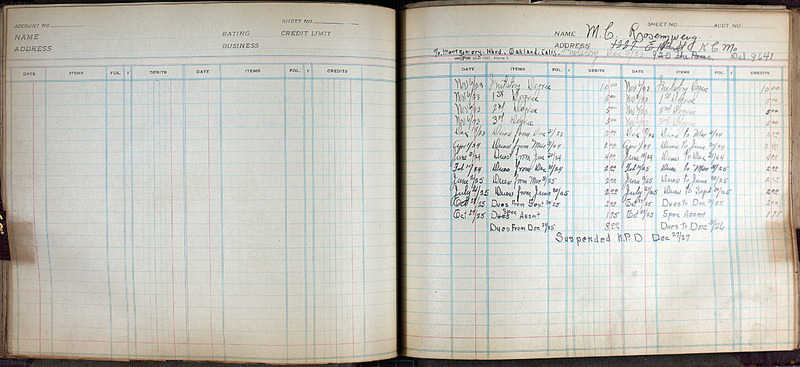 ACCOUNT NO.
SHEET NO.
NAME
RATING
CREDIT LIMIT
ADDRESS
BUSINESS
DATE ITEMS FOL. √ DEBITS DATE ITEMS FOL. √ CREDITS
SHEET NO. ACCT. NO.
NAME M. C. Rosenzweig
ADDRESS 1227 E K C Mo
% Montgomery-Ward, Oakland, Calif. 920 Del 9641
DATE ITEMS FOL. √ DEBITS DATE ITEMS FOL. √ CREDITS
Nov 6/23 Initiatory Degree 10 00 Nov 6/23 Initiatory Degree 10 00
Nov 6/23 1st Degree 5 00 Nov 6/23 1st Degree 5 00
Nov 6/23 2nd Degree 5 00 Nov 6/23 2nd Degree 5 00
Nov 6/23 3rd Degree 5 00 Nov 6/23 3rd Degree 5 00
Dec Dues from Dec 2 00 Dec Dues to Mar /24 2 00
Apr /24 Dues from Mar /24 2 00 Apr /24 Dues to June /24 2 00
June /24 Dues from June /24 4 00 June /24 Dues to Dec /24 4 00
Feb Dues from Dec /24 2 00 Feb Dues to Mar /25 2 00
June /25 Dues from Mar /25 2 00 June /25 Dues to June /25 2 00
July /25 Dues from June /25 2 00 July /25 Dues to Sept /25 2 00
Oct 27/25 Dues From Sept /25 2 00 Oct 27/25 Dues to Dec 31/25 2 00
Oct 27/25 Spec Assmt 1 75 Oct 27/25 Spec Assmt 1 75
Dues From Dec 31/25 8 00 Dues to Dec 31/26
Suspended N.P.D. Dec 27/27